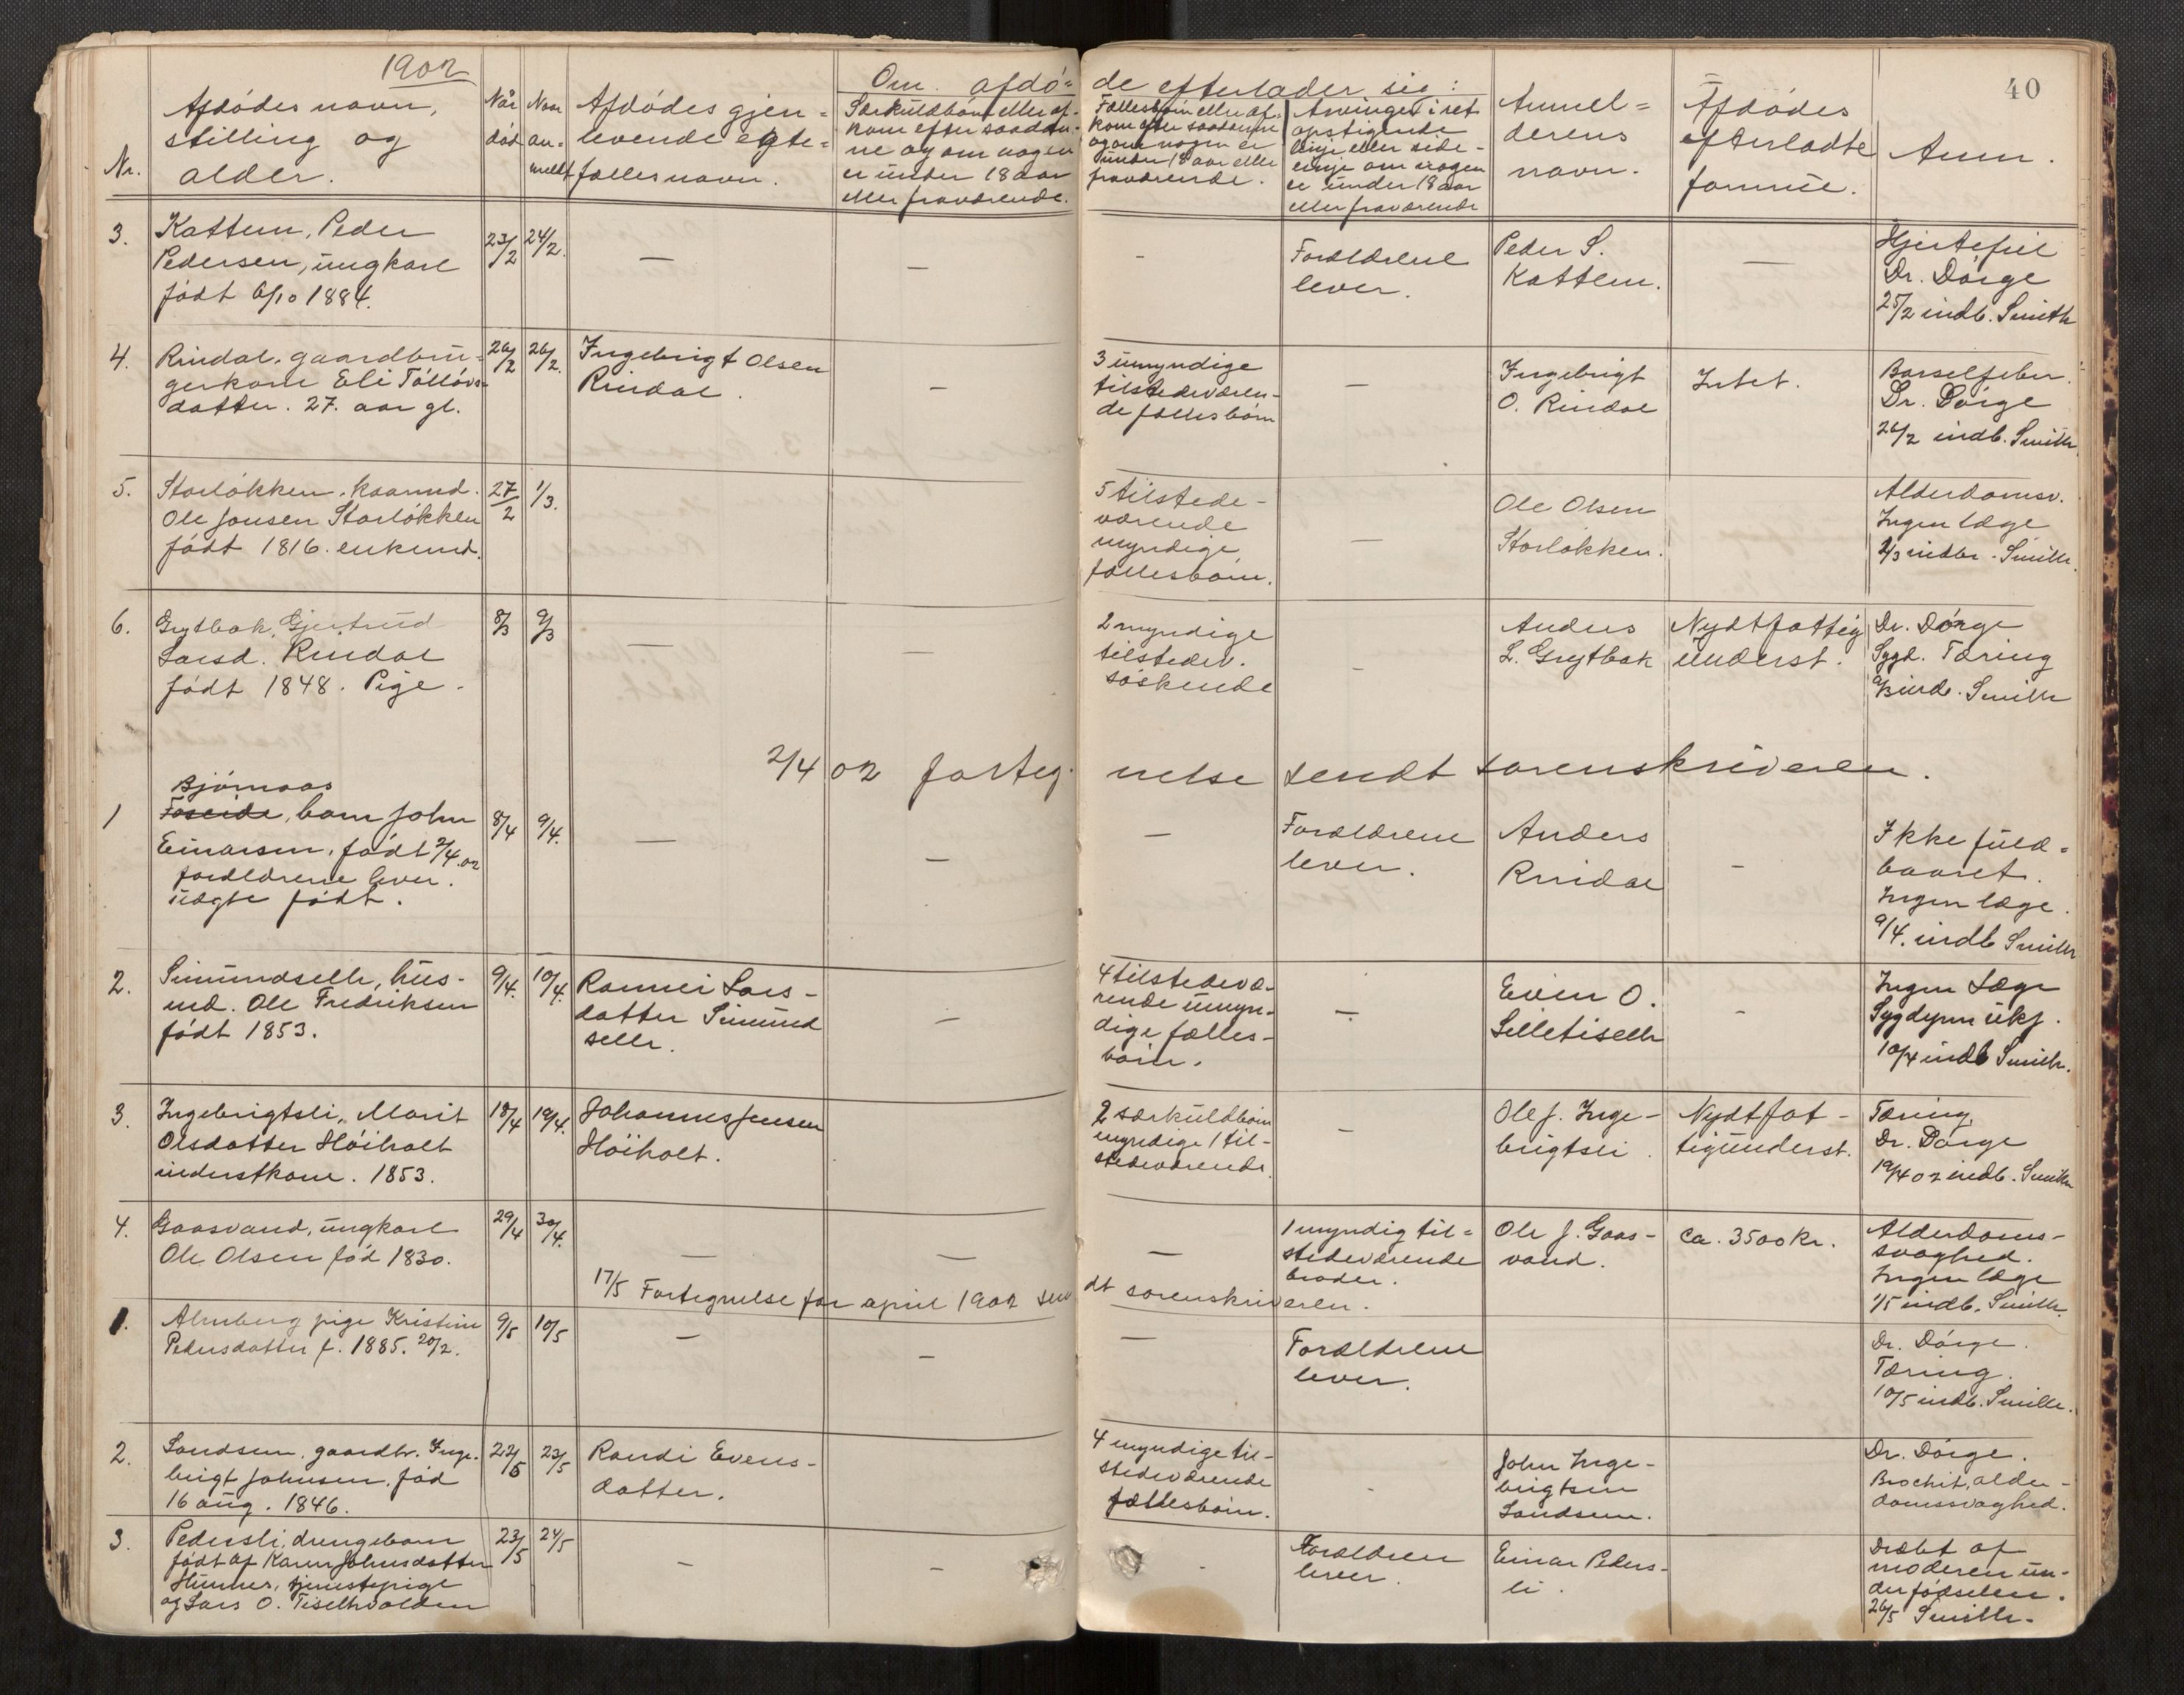 1902
40
Nr.
Afdødes navn,
stilling og
alder.
Når
død
Naar
an-
meldt
Afdødes gjen-
levende egte-
fælles navn.
Om afdø-
de efterlader sig:
Særkuldbørn eller af-
kom efter saadan-
ne og om nogen
er under 18 aar
eller fraværende.
Fællesbørn eller af-
kom efter saadanne
og om nogen er
under 18 aar eller
fraværende.
Arvinger i ret
opstigende
linje eller side-
linje om nogen
er under 18 aar
eller fraværende
Anmel=
derens
navn.
Afdødes
efterladte
formue.
Anm.
3.
Kattem, Peder
Pedersen, ungkarl
født 6/10 1884.
23/2
24/2.
—
—
-
Forældrene
lever.
Peder S.
Kattem.
—
Hjertefeil
Dr. Dørge
25/2 indb. Smith
4.
Rindal, gaardbru-
gerkone Eli Tølløvs-
datter. 27. aar gl.
26/2
26/2.
Ingebrigt Olsen
Rindal.
—
3 umyndige
tilstedeværen-
de fællesbørn
—
Ingebrigt
O. Rindal
Intet.
Barselfeber.
Dr. Dørge
26/2 indb. Smith
5.
Storløkken, kaarmd.
Ole Jonsen Storløkken
født 1816. enkemd.
27/2
1/3.
5 tilstede-
værende
myndige
fællesbørn.
—
Ole Olsen
Storløkken.
Alderdomsv.
Ingen læge
1/3 indbr. Smith.
6.
Grytbak, Gjertrud
Larsd. Rindal
født 1848. Pige.
8/3
9/3
—
—
2 myndige
tilstedev.
søskende
-
Anders
L. Grytbak
Nydt fattig
underst.
Dr. Dørge
Sygd. Tæring
9/3 indb. Smith
2/4 02 forteg-
nelse sendt sorenskriveren.
1
Bjørnaas
Foseide, barn John
Einarsen, født 2/4 02
forældrene lever.
uægte født.
8/4
9/4.
—
—
—
Forældrene
lever.
Anders
Rindal
-
Ikke fuld-
baaret.
Ingen læge.
9/4. indb Smith
2.
Simundsellr, hus-
md. Ole Fredriksen
født 1853.
9/4.
10/4.
Rannei Lars-
datter Simund
sellr.
—
4 tilstedevæ-
rende umyn-
dige fælles-
børn.
—
Even O.
Silletisellr
-
Ingen Læge
Sygdymn ukj.
10/4 indb Smith.
3.
Ingebrigtsli, Marit
Olsdatter Høiholt
inderstkone. 1853.
18/4
19/4.
Johannes Jensen
Høiholt.
2 særkuldbørn
myndige 1 til-
stedeværende.
—
Ole J. Inge-
brigtsli.
Nydt fat-
tigunderst.
Tæring,
Dr. Dørge
19/4 02 indb. Smith
4.
Gaasvand, ungkarl
Ole Olsen fød 1830.
29/4
30/4.
—
—
—
1 myndig til=
stedeværende
broder.
Ole J. Gaas-
vand.
ca. 3500 kr.
Alderdoms-
svaghed.
Ingen læge
1/5 indb. Smith.
17/5 Fortegnelse for april 1902 sen
dt sorenskriveren.
1.
Almberg pige Kristine
Pedersdatter f. 1885. 20/2.
9/5
10/5
—
—
—
Forældrene
lever.
Dr. Dørge.
Tæring.
10/5 indb. Smith.
2.
Landsem, gaardbr. Inge-
brigt Johnsen, fød
16 aug. 1846.
22/5
23/5
Randi Evens-
datter.
4 myndige til-
stedeværende
fællesbørn.
-
John Inge-
brigtsen
Landsem.
Dr. Dørge.
Brochit, alder-
domssvaghed.
3.
Pedersli, drengebarn
født af Karen Johnsdatter
Hummes, tjenestepige
og Lars O. Tisellhvolden
23/5
24/5
—
—
-
Forældren
lever.
Einar Peders-
li.
Dræbt af
moderen un-
der fødselen.
26/5 Smith.